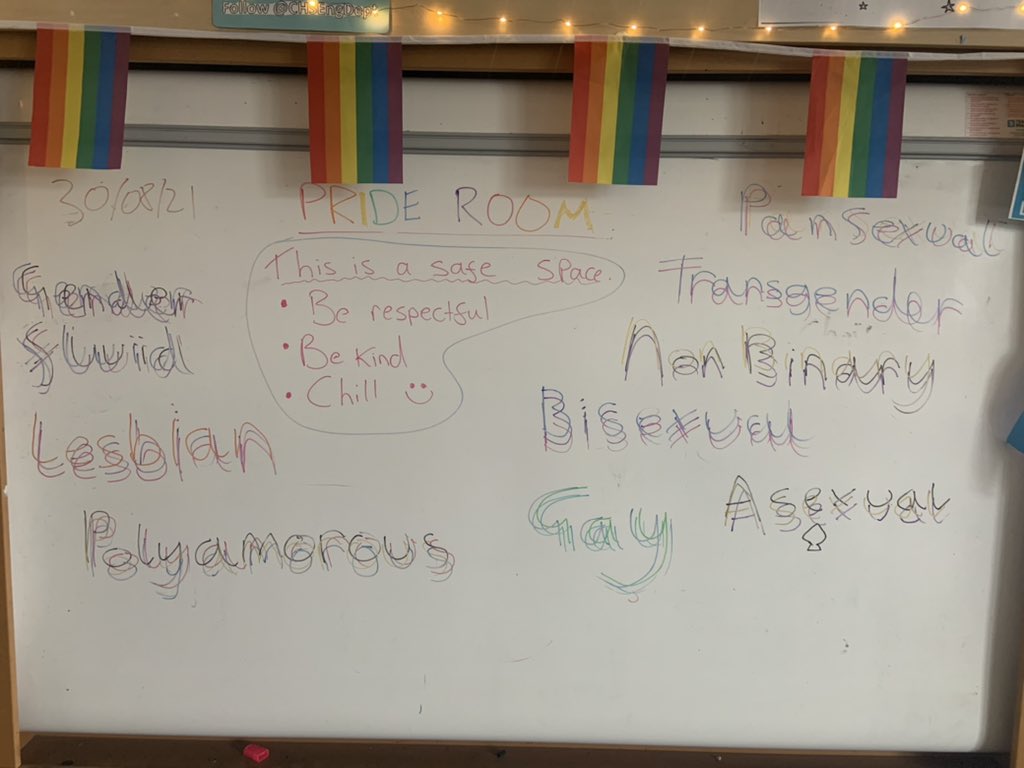 Follow @CHSEngDept
30/08/21
PRIDE ROOM
This is a safe space.
• Be respectful
• Be Kind
• Chill
Gender
fluid
Lesbian
Polyamorous
Pansexual
Transgender
Non Binary
Bisexual
Gay
Asexual